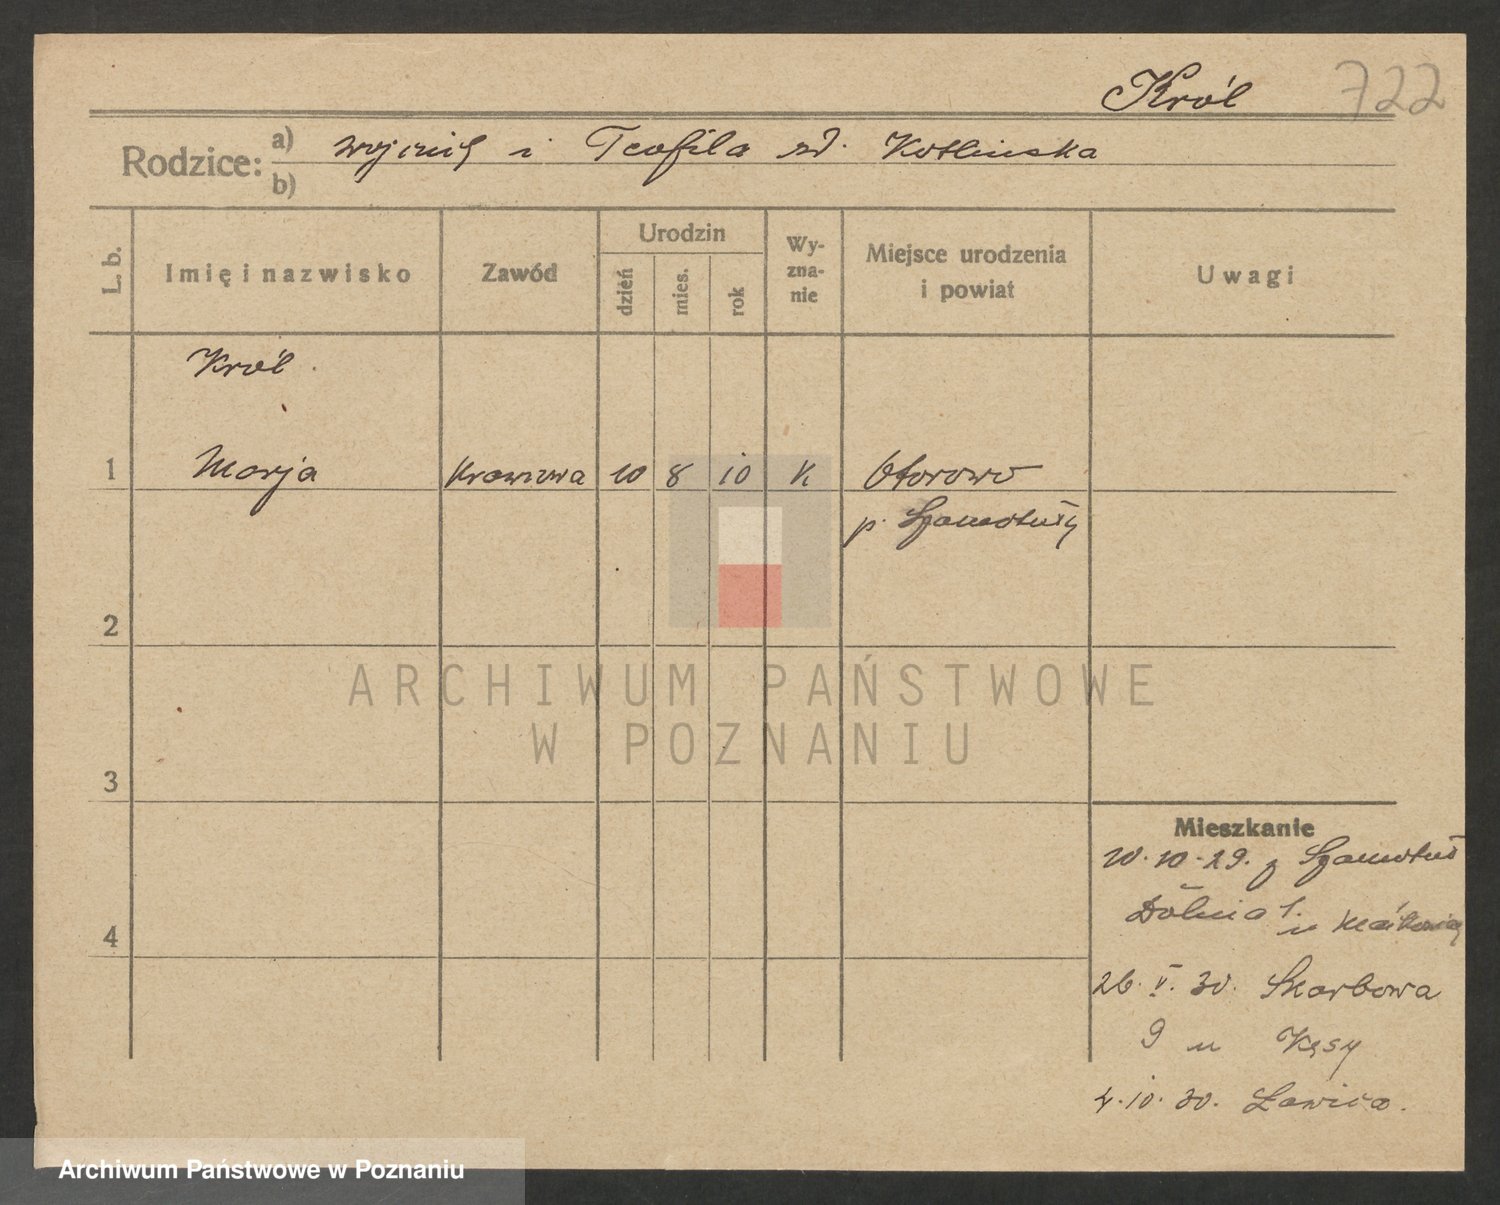 Król 722
Rodzice: a) Wojciech i Teofila zd. Kotlinska
b)
L. b. Imię i nazwisko Zawód Urodzin dzień mies. rok Wy-zna-nie Miejsce urodzenia i powiat Uwagi
Król
1 Marja Krawcowa 10 8 10 K Otorowo
p. Szamotuły
2
3
4
Mieszkanie
10.10.29. z Szamotuł
Dolna 1.
u
26.V.30. Skarbowa
9 u Kęsy
4.10.30. Ławica.
ARCHIWUM PAŃSTWOWE
W POZNANIU
Archiwum Państwowe w Poznaniu